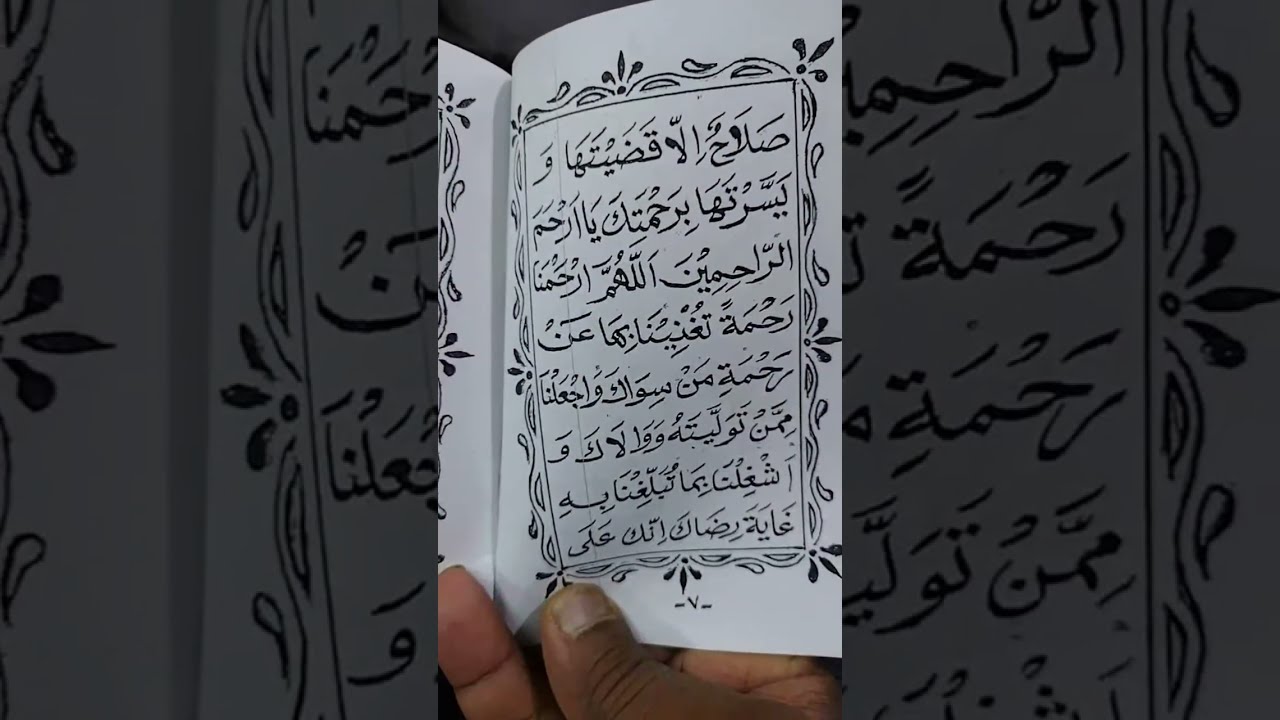 صَلَاحٌ اِلَّا قَضَيْتَهَا وَ
يَسَّرْتَهَا بِرَحْمَتِكَ يَا اَرْحَمَ
الرَّاحِمِيْنَ اَللّٰهُمَّ ارْحَمْنَا
رَحْمَةً تُغْنِيْنَا بِهَا عَنْ
رَحْمَةِ مَنْ سِوَاكَ وَاجْعَلْنَا
مِمَّنْ تَوَلَّيْتَهُ وَوَالَاكَ وَ
اَشْغِلْنَا بِمَا تُبَلِّغُنَا بِهِ
غَايَةَ رِضَاكَ اِنَّكَ عَلَى
-٧-